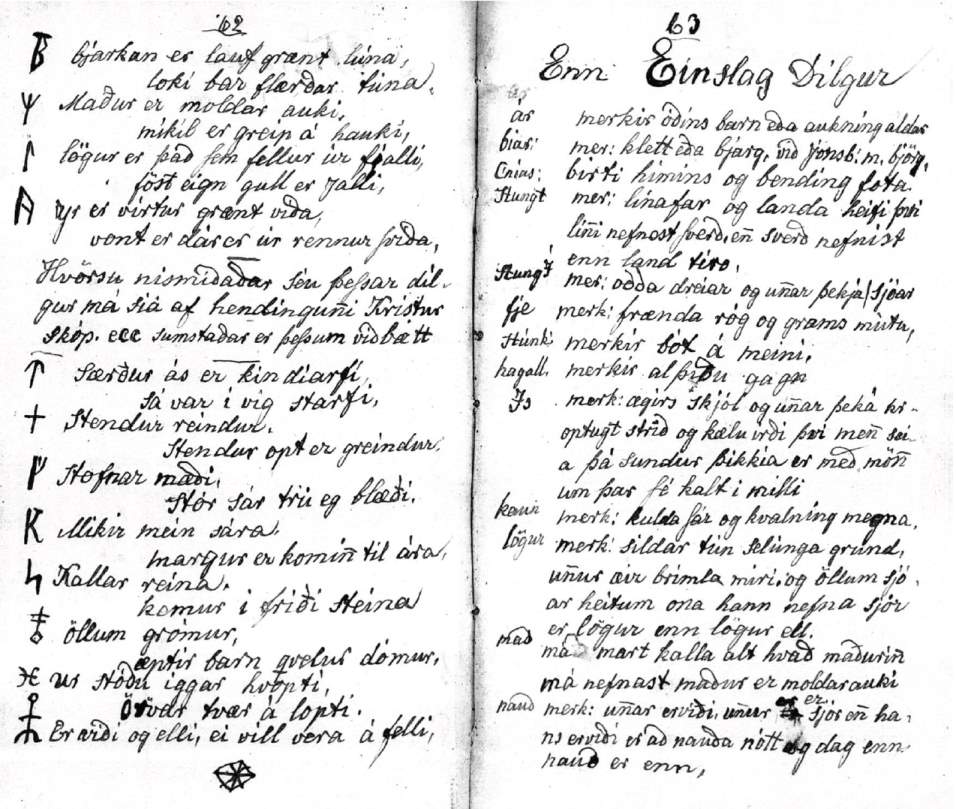 62
ᛒ bjarkan er lauf grænt líma,
loki bar flærdar tima.
ᛘ Maður er moldar auki,
mikil er greip á hauki,
ᛚ lögur er það sem fellur úr fjalli,
föst eign gull er Jalli,
ᛦ yr er virtur grænt viða,
vont er dár er úr rennur friða,
Hvörsu nismidadar séu þessar dil-
gur má siá af hendinguni Kristur
sköp. ecc sumstadar er þessum vidbætt
ᛏ Særður ás er kindiarfi,
sá var í víg starfi,
Stendur reindur.
Stendur opt er greindur.
Stofnar mæði,
Stór sár trú eg blæði.
K Mikir mein sára.
margur er komin̄ til ára,
ᛋ Kallar reina.
kemur i friði steina
öllum grómur,
æptir barn qvelur dómur,
ur stöðu iggar hvopti,
örvar tvær á lopti.
Erviði og elli, ei vill vera á felli,
63
Enn Einslag Dilgur
ár merkir óðins barn eða aukning aldar
biar: mer: klett eða bjarg, við Jonsb: m, björg,
Cnias: birti himins og bending fota.
Stungt mer: línafar og landa heiti því
lin̄i nefnest sverð, en̄ sverð nefnist
enn land tiro.
Stungt mer: odda dreiar og un̄ar þekja/sjóar
fje merk: frænda róg og grams múta,
Stúnk: merkir bót á meini,
hagall. merkir alþiðu gagn
Is merk: ægirs skjól og un̄ar þeká kr-
optugt strið og kælu irði því men̄ sei-
a þá sundur þikkia er með mön̄
um þar fé kalt i milli
kaun merk: kulda sár og kvalning megna,
lögur merk: sildar tún selúnga grund,
un̄ur æir brimla miri, og öllum sjó-
ar heitum ona hann nefna sjór
er lögur enn lögur ell.
mad má mart kalla alt hvað maðurin̄
má nefnast maður er moldar auki
naud merk: un̄ar erviði, un̄ur er sjór en̄ ha-
ns erviði er að nauda nótt og dag enn
nauð er enn,